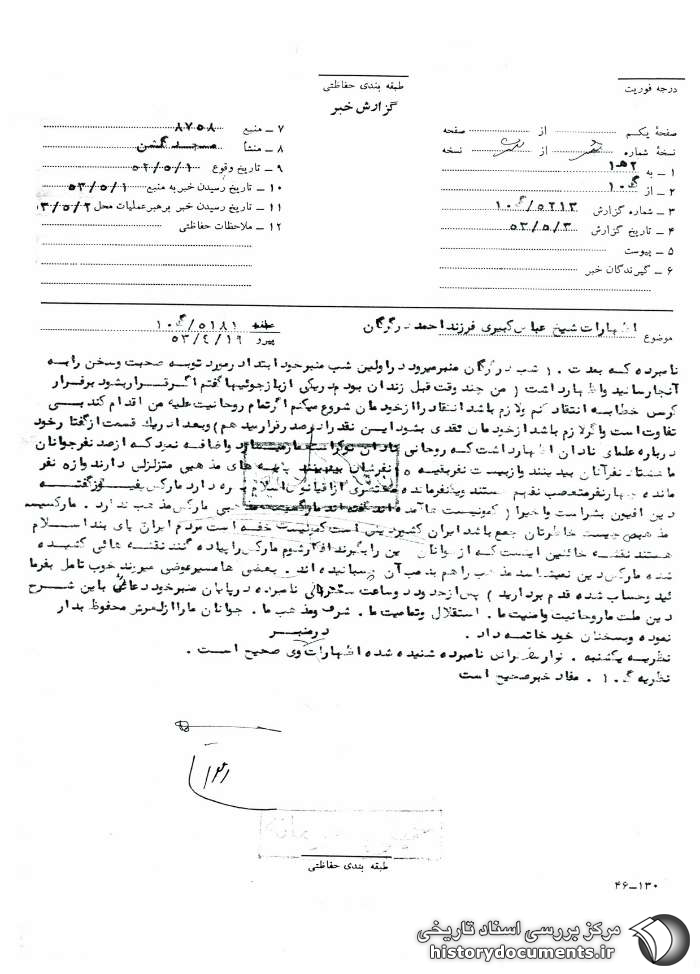 درجه فوریت
طبقه بندی حفاظتی
گزارش خبر
صفحهٔ یکم از صفحه
نسخهٔ شماره از نسخه
۱ – به ۱ه۲
۲ – از ۱۰گ
۳ – شماره گزارش ۵۲۱۳/۱۰گ
۴ – تاریخ گزارش ۵۳/۵/۳
۵ – پیوست
۶ – گیرندگان خبر
۷ – منبع ۸۷۵۸
۸ – منشأ مسجد گلشن
۹ – تاریخ وقوع ۵۳/۵/۱
۱۰ – تاریخ رسیدن خبر به منبع ۵۳/۵/۱
۱۱ – تاریخ رسیدن خبر برهبر عملیات محل ۳/۵/۲
۱۲ – ملاحظات حفاظتی
موضوع اظهارات شیخ عباس کبیری فرزند احمد در گرگان
عطف ۵۱۸۱/۱۰گ
پیرو ۵۳/۴/۱۹
نامبرده که بمدت ۱۰ شب در گرگان منبر میرود در اولین شب منبر خود ابتدا در مورد توبه صحبت و سخن را به
آنجا رسانید و اظهار داشت ( من چند وقت قبل زندان بودم در یکی از بازجوئیها گفتم اگر قرار بشود بر فراز
کرسی خطابه انتقاد کنم و لازم باشد انتقاد را از خودمان شروع میکنم اگر تمام روحانیت علیه من اقدام کند بی
تفاوت است و اگر لازم باشد از خودمان نقدی بشود این نقد را در صدر قرار میدهم ) و بعد از یک قسمت از گفتار خود
درباره علمای نادان اظهار داشت که روحانی نادان و اضافه نمود که از صد نفر جوانان
ما هشتاد نفر آنان بیدینند و از بیست نفر بقیه ۱۵ نفرشان پایه های مذهبی متزلزلی دارند و از ه نفر
مانده چهار نفر متعصب نفهم هستند و یکنفر مانده مختصری از اسلام بهره دارد مارکس گفته
دین افیون بشر است و اخیراً ( کمونیست ها آمده اند گفته اند مارکس مذهب ندارد . مارکسیسم
مذهبی نیست خاطرتان جمع باشد ایران کشور دینی است کمونیست خفه است مردم ایران پای بند اسلام
هستند نقشه خائنین اینست که از جوانان دین را بگیرند افکار شوم مارکس را پیاده کنند نقشه هائی کشیده
شده مارکس دین نمیشناسد مذهب را هم بدنبال آن . بعضی ها مسیر عوضی میروند خوب تامل بفرما
ئید و حساب شده قدم بردارید ) پس از حدود دو ساعت سخنرانی نامبرده در پایان منبر خود دعائی باین شرح
دین ملت ما روحانیت و امنیت ما . استقلال و تمامیت ما . شرف و مذهب ما . جوانان ما را از لغزش محفوظ بدار
نموده و بسخنان خود خاتمه داد .
در منبر
نظریه یکشنبه . نوار سخنرانی نامبرده شنیده شده اظهارات وی صحیح است .
نظریه ۱۰گ . مفاد خبر صحیح است
طبقه بندی حفاظتی
۴۶–۱۳۰
مرکز بررسی اسناد تاریخی
historydocuments.ir